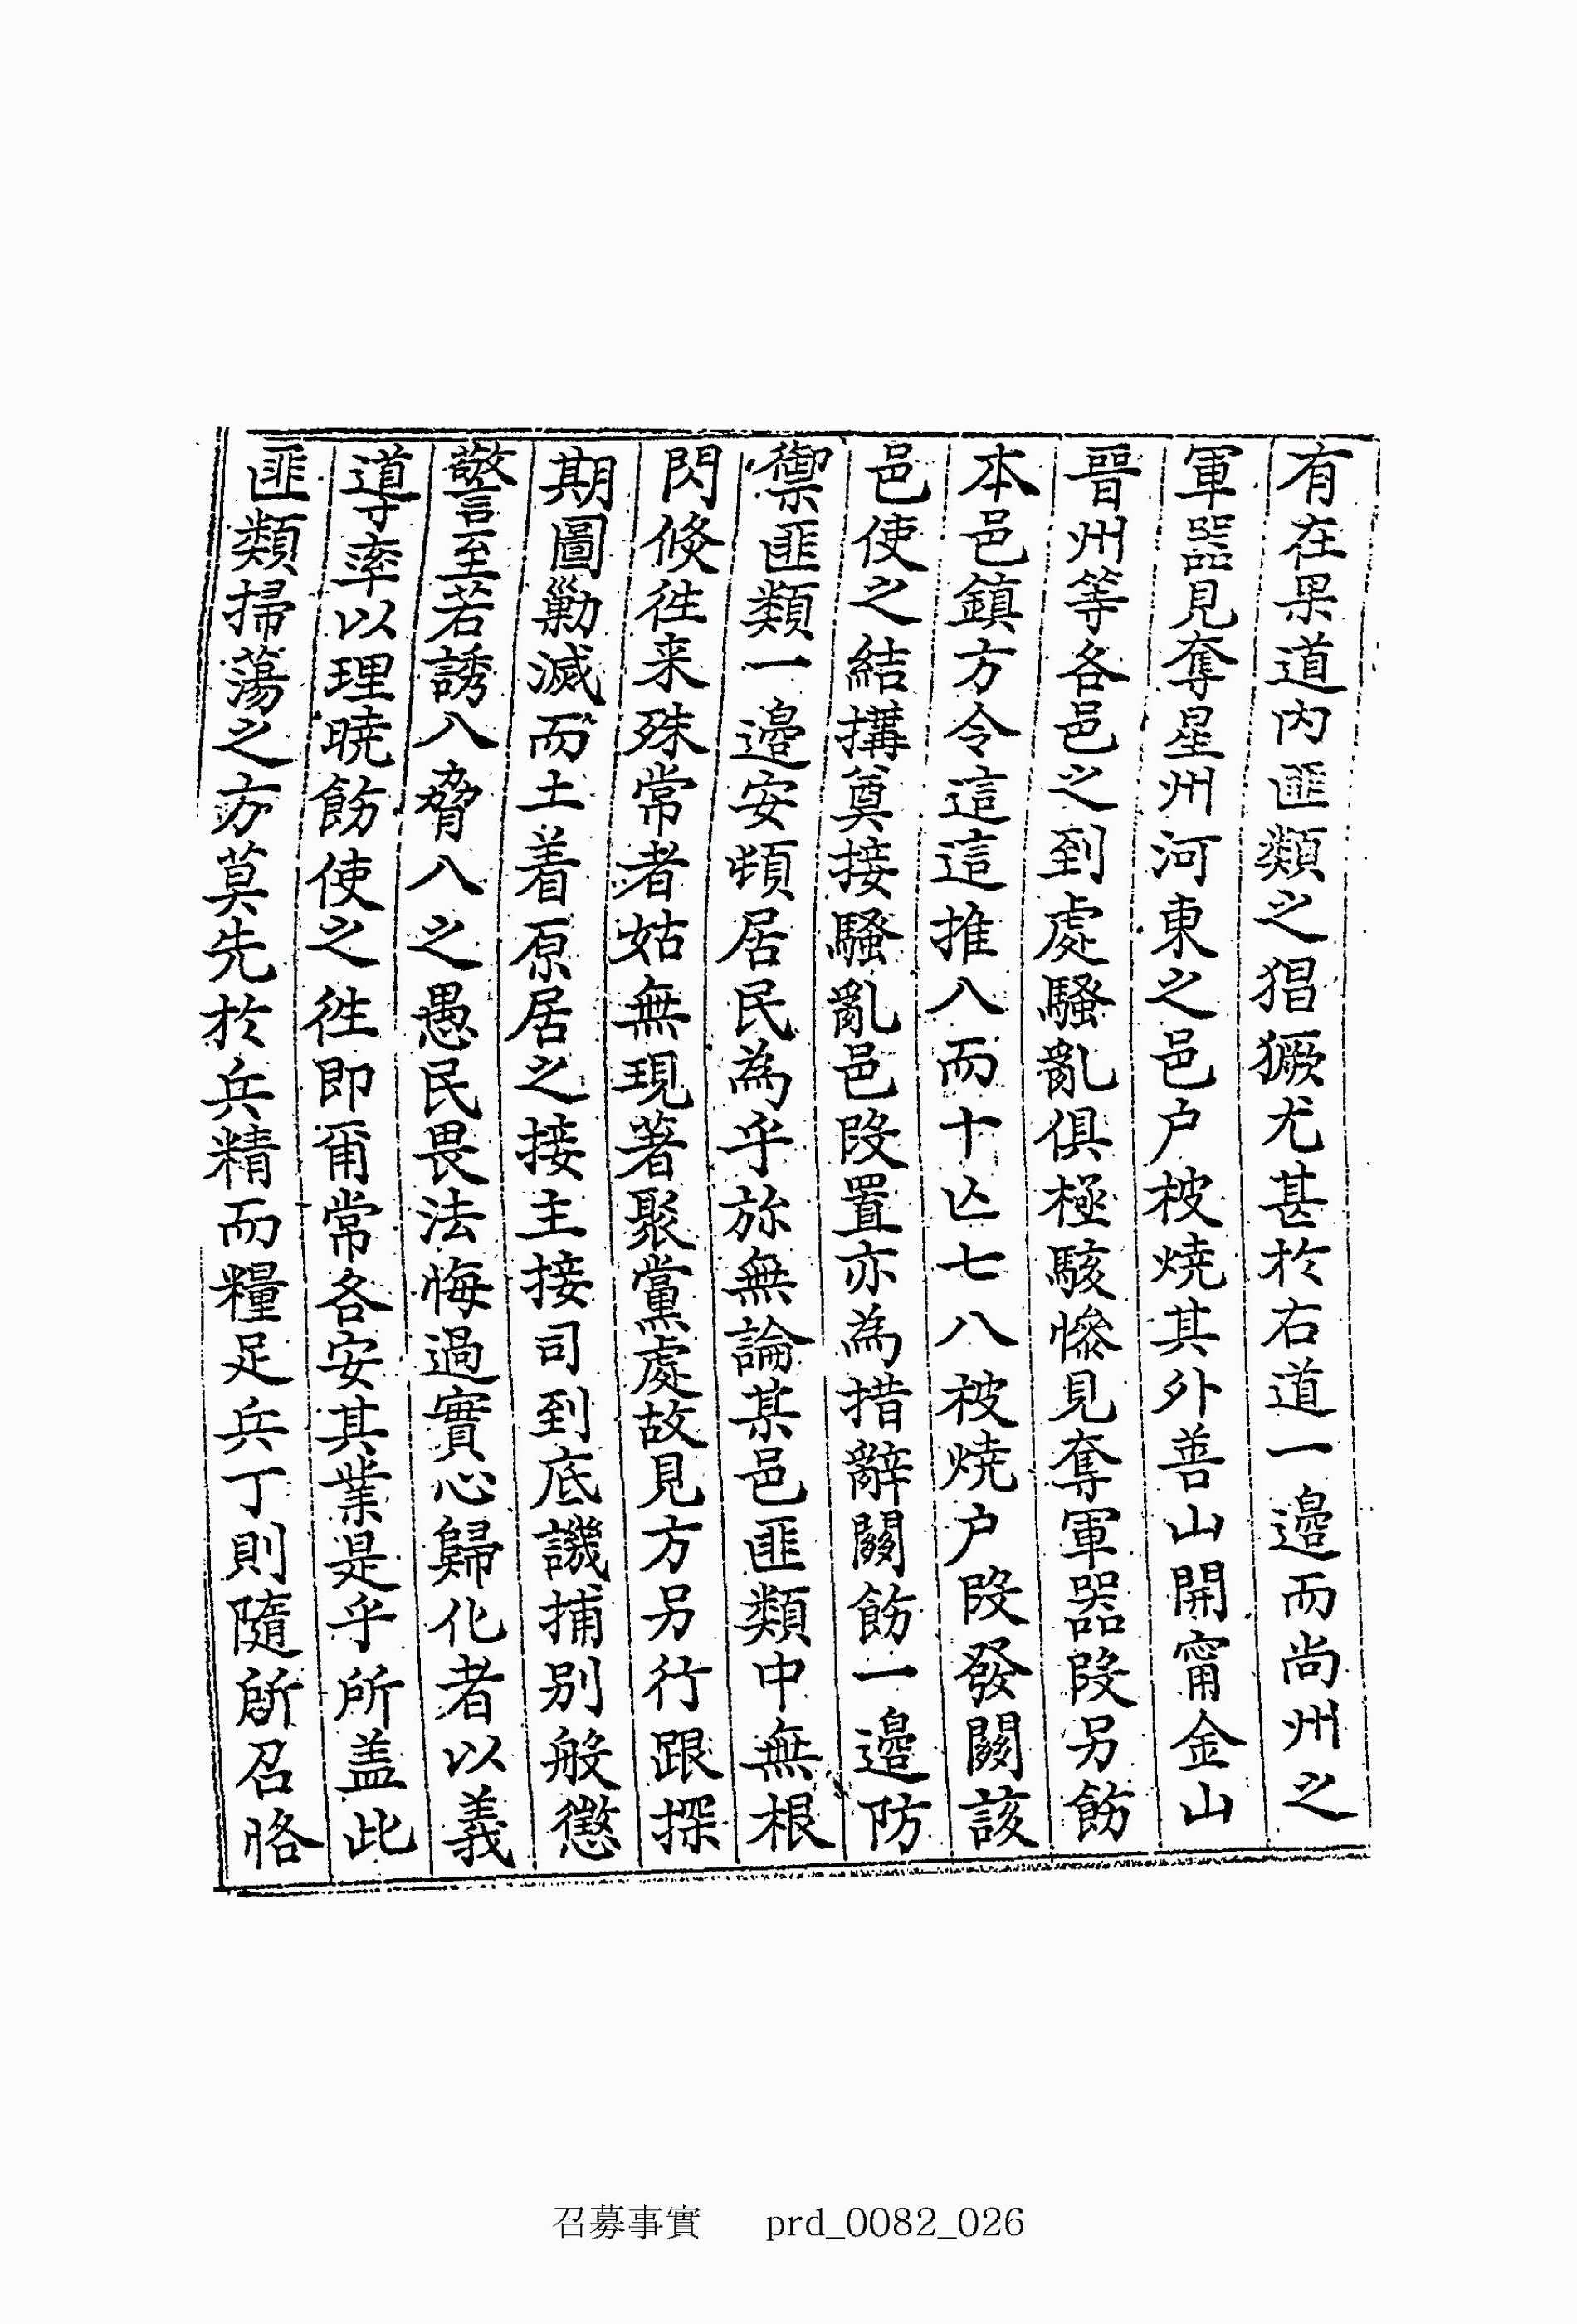 有在果道內匪類之猖獗尤甚於右道一邊而尙州之
軍器見奪星州河東之邑戶被燒其外善山開寗金山
晉州等各邑之到處騷亂俱極駭慘見奪軍器段另飭
本邑鎭方令這這推入而十亾七八被燒戶段發關該
邑使之結搆奠接騷亂邑段置亦爲措辭關飭一邊防
禦匪類一邊安頓居民爲乎旀無論某邑匪類中無根
閃倐徃来殊常者姑無現著聚黨處故見方另行跟探
期圖勦滅而土着原居之接主接司到底譏捕別般懲
警至若誘入脅入之愚民畏法悔過實心歸化者以義
導率以理曉飭使之徃卽甭常各安其業是乎所盖此
匪類掃蕩之方莫先於兵精而糧足兵丁則隨所召恪